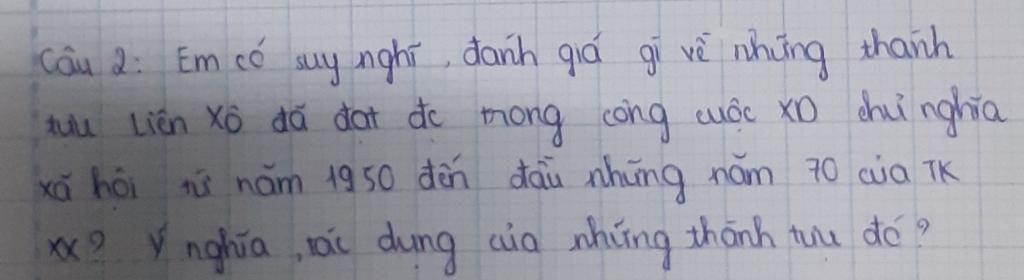 Câu 2: Em có suy nghĩ, đánh giá gì về những thành
tựu Liên Xô đã đạt đc trong công cuộc XD chủ nghĩa
xã hội từ năm 1950 đến đầu những năm 70 của TK
XX? Ý nghĩa, tác dụng của những thành tựu đó?